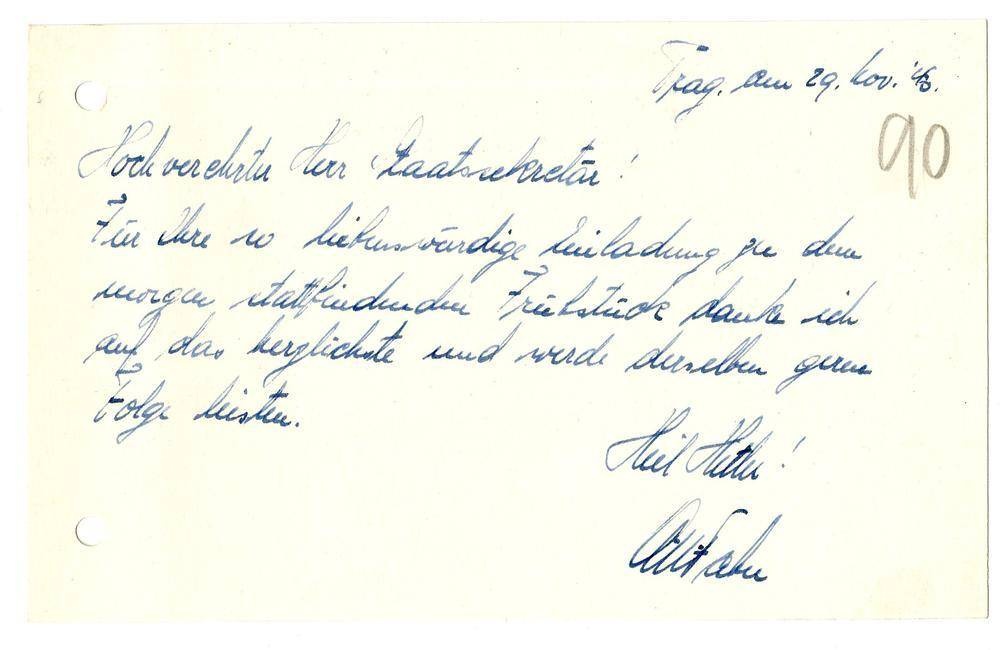 Prag, am 29. Nov. '43.
90
Hochverehrter Herr Staatssekretär!
Für Ihre so liebenswürdige Einladung zu dem
morgen stattfindenden Frühstück danke ich
auf das herzlichste und werde derselben gerne
Folge leisten.
Heil Hitler!